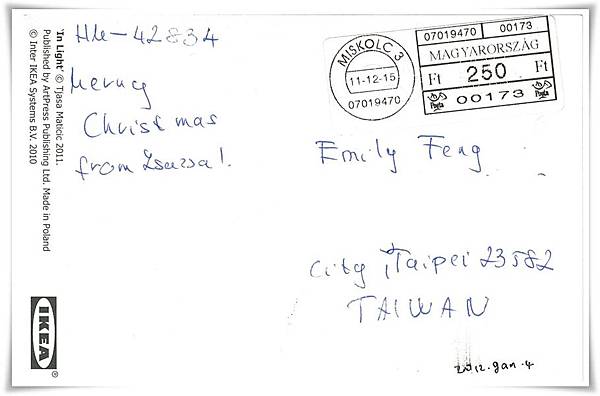 HU-42834
Merry
Christmas
from Zsazsa!
'In Light' © Tjasa Maticic 2011.
Published by ArtPress Publishing Ltd. Made in Poland
© Inter IKEA Systems B.V. 2010
IKEA®
MISKOLC 3
11-12-15
07019470
07019470 00173
MAGYARORSZÁG
Ft 250 Ft
Posta 00173 Posta
Emily Feng
City, Taipei 23582
TAIWAN
2012.Jan.4